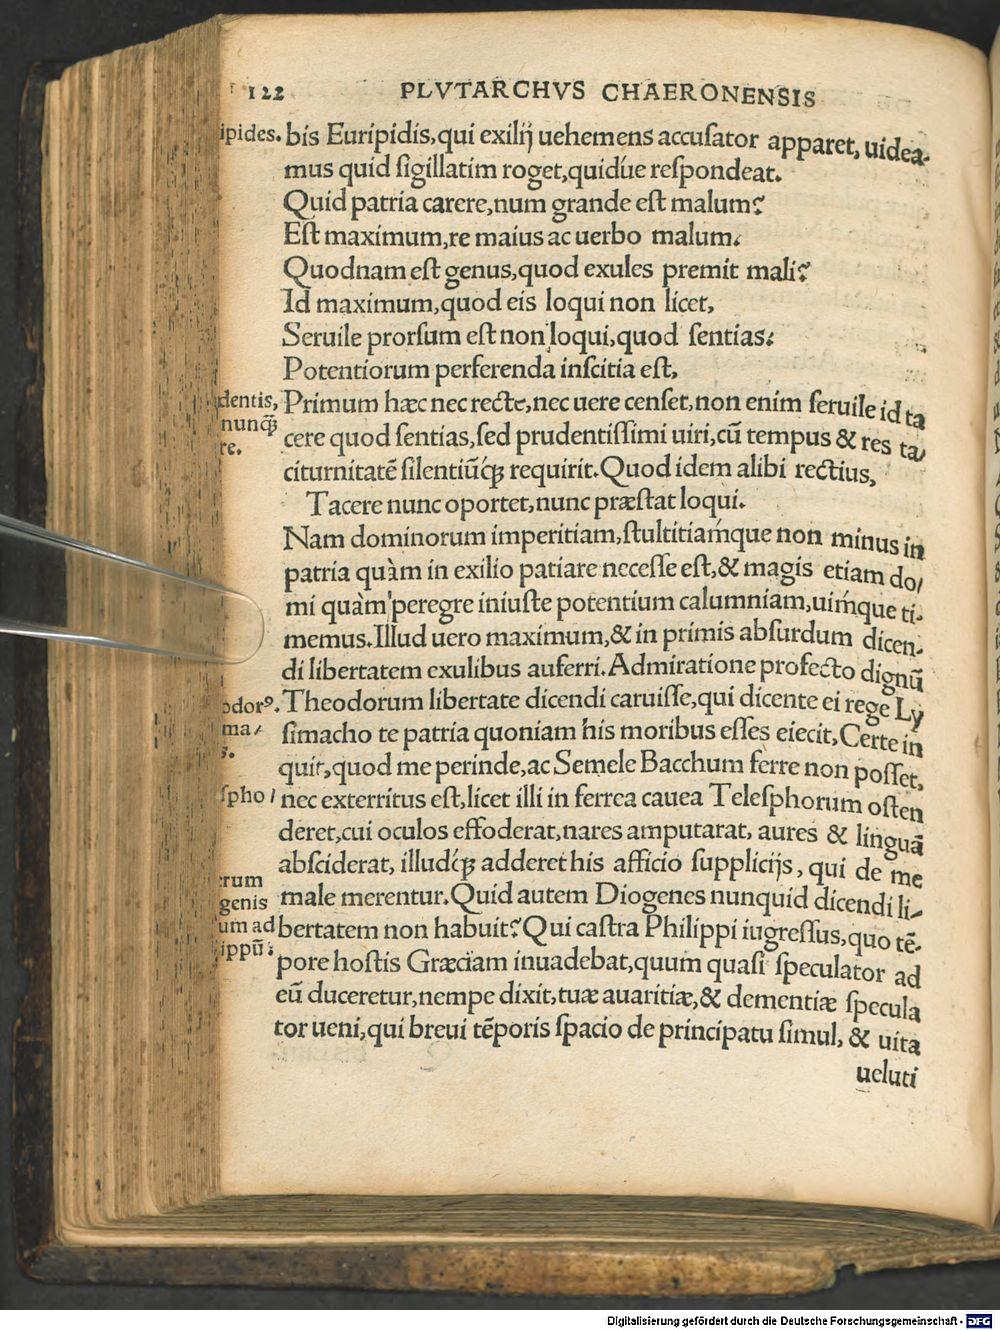 122 PLVTARCHVS CHAERONENSIS
ipides. bis Euripidis, qui exilij uehemens accuſator apparet, uidea-
mus quid ſigillatim roget, quidúe reſpondeat.
Quid patria carere, num grande eſt malum?
Eſt maximum, re maius ac uerbo malum.
Quodnam eſt genus, quod exules premit mali?
Id maximum, quod eis loqui non licet,
Seruile prorſum eſt non loqui, quod ſentias.
Potentiorum perferenda inſcitia eſt,
dentis, Primum hæc nec recte, nec uere cenſet, non enim ſeruile id ta
nunq̃
cere quod ſentias, ſed prudentiſſimi uiri, cũ tempus & res ta/
re.
citurnitatẽ ſilentiũq́; requirit. Quod idem alibi rectius,
Tacere nunc oportet, nunc præſtat loqui.
Nam dominorum imperitiam, ſtultitiamque non minus in
patria quàm in exilio patiare neceſſe eſt, & magis etiam do/
mi quàm peregre iniuſte potentium calumniam, uimque ti-
memus. Illud uero maximum, & in primis abſurdum dicen-
di libertatem exulibus auferri. Admiratione profecto dignũ
odorꝰ. Theodorum libertate dicendi caruiſſe, qui dicente ei rege Ly
ma/ ſimacho te patria quoniam his moribus eſſes eiecit, Certe in
s.
quit, quod me perinde, ac Semele Bacchum ferre non poſſet,
ſpho/ nec exterritus eſt, licet illi in ferrea cauea Teleſphorum oſten
deret, cui oculos effoderat, nares amputarat, aures & linguã
abſciderat, illudq́; adderet his afficio ſupplicijs, qui de me
rum
genis male merentur. Quid autem Diogenes nunquid dicendi li-
um ad bertatem non habuit? Qui caſtra Philippi iugreſſus, quo tẽ-
ippũ. pore hoſtis Græciam inuadebat, quum quaſi ſpeculator ad
eũ duceretur, nempe dixit, tuæ auaritiæ, & dementiæ ſpecula
tor ueni, qui breui tẽporis ſpacio de principatu ſimul, & uita
ueluti
Digitalisierung gefördert durch die Deutsche Forschungsgemeinschaft - DFG